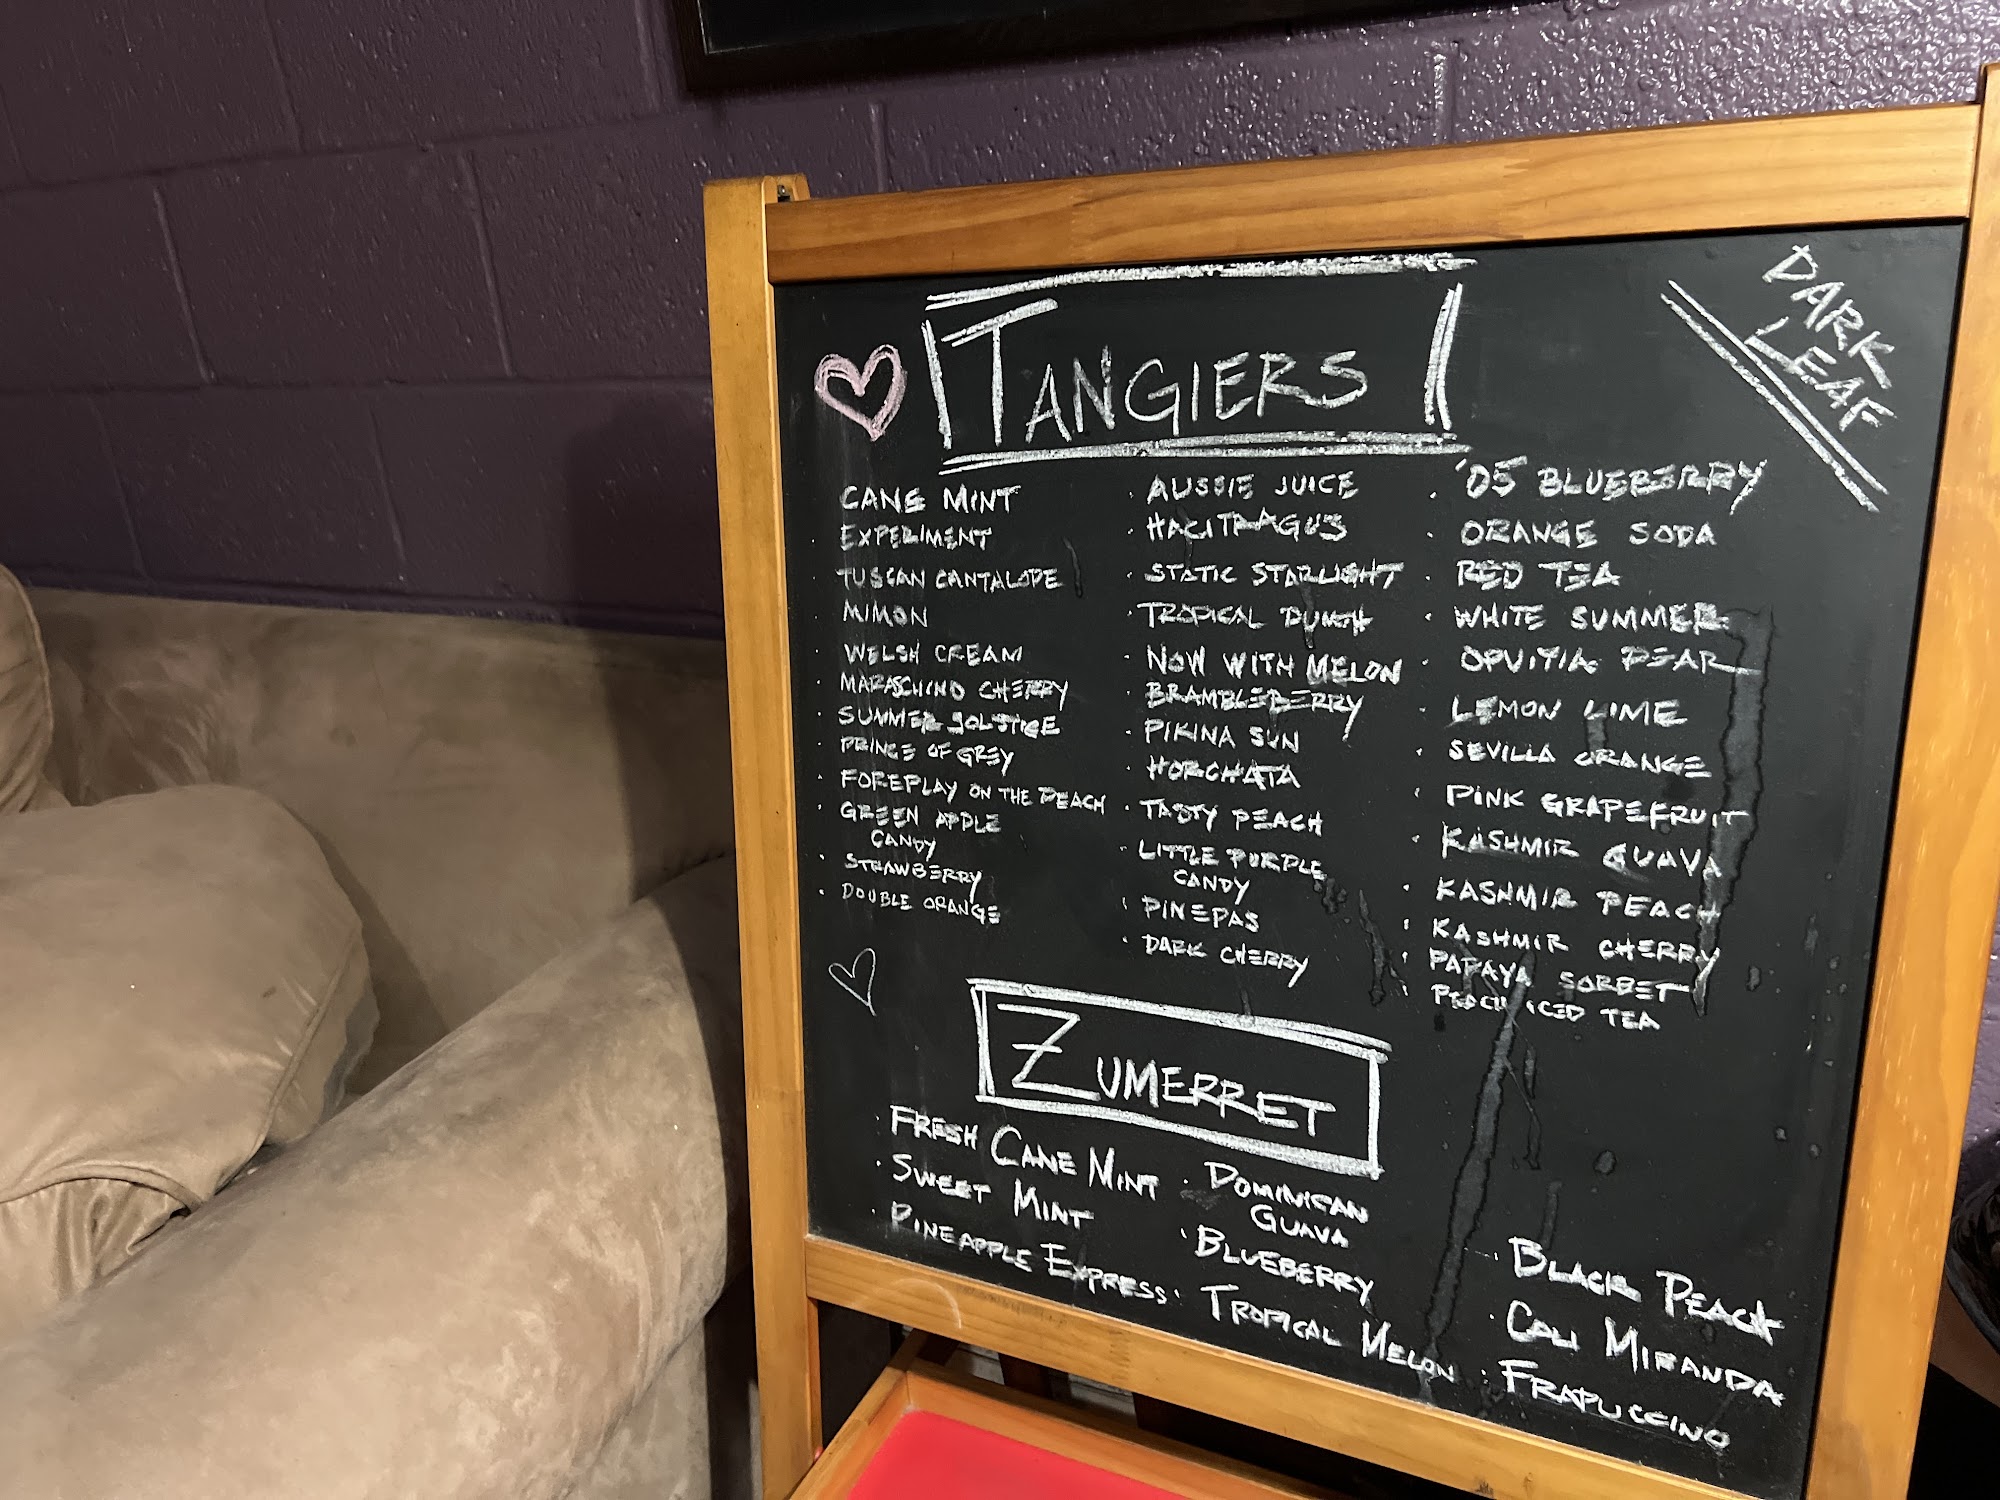 DARK
LEAF
TANGIERS
CANE MINT
· EXPERIMENT
· TUSCAN CANTALOPE
· MIMON
· WELSH CREAM
· MARASCHINO CHERRY
· SUMMER SOLSTICE
· PRINCE OF GREY
· FOREPLAY ON THE PEACH
· GREEN APPLE
CANDY
· STRAWBERRY
· DOUBLE ORANGE
· AUSSIE JUICE
· HACITRAGUS
· STATIC STARLIGHT
· TROPICAL PUNCH
· NOW WITH MELON
· BRAMBLEBERRY
· PIKINA SUN
· HORCHATA
· TASTY PEACH
· LITTLE PURPLE
CANDY
· PINEPAS
· DARK CHERRY
· '05 BLUEBERRY
· ORANGE SODA
· RED TEA
· WHITE SUMMER
· PEAR
· LEMON LIME
· SEVILLA ORANGE
· PINK GRAPEFRUIT
· KASHMIR GUAVA
· KASHMIR PEACH
· KASHMIR CHERRY
· PAPAYA SORBET
· PEACH ICED TEA
ZUMERRET
· FRESH CANE MINT
· SWEET MINT
· PINEAPPLE EXPRESS
· DOMINICAN
GUAVA
· BLUEBERRY
· TROPICAL MELON
· BLACK PEACH
· CALI MIRANDA
· FRAPUCCINO